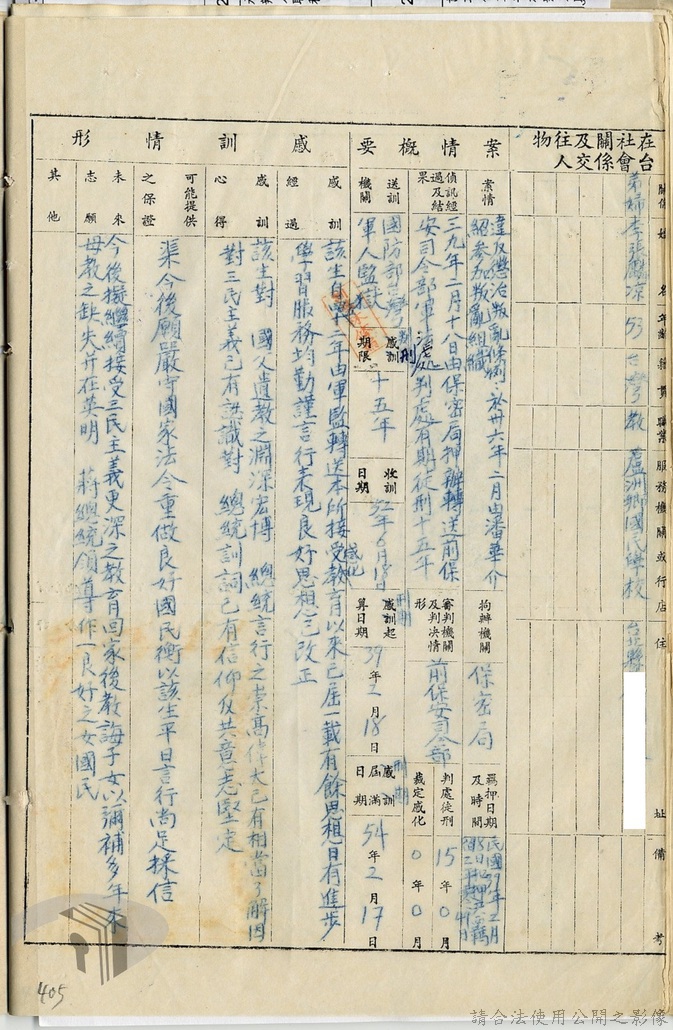 在台社會關係及交往人物
關係 姓名 年齡 籍貫 職業 服務機關或行店 住址 備考
弟婦 李張 53 台灣 教 蘆洲鄉國民學校 台北縣
案情概要
案情
違反懲治叛亂條例：於卅六年二月由潘華介
紹參加叛亂組織
拘辦機關
保密局
羈押日期及時間
民國39年2月
偵訊經過及結果
三九年二月十八日由保密局押辦轉送前保
安司令部軍法處判處有期徒刑十五年
審判機關及判決情形
前保安司令部
判處徒刑 15年0月
裁定感化 0年0月
送訓機關
國防部台灣
軍人監獄
感訓期限
刑期
十五年
收訓日期
52年6月18日
感訓起算日期
刑期
39年2月18日
感訓屆滿日期
刑期
54年2月17日
感訓情形
感訓經過
該生自五十二年由軍監轉送本所接受感化教育以來已屆一載有餘思想日有進步
學習服務均勤謹言行表現良好思想已改正
感訓心得
該生對 國父遺教之淵深宏博 總統言行之崇高偉大已有相當了解因
對三民主義已有認識對 總統訓詞已有信仰反共意志堅定
可能提供之保證
渠今後願嚴守國家法令重做良好國民衡以該生平日言行尚足採信
未來志願
今後擬繼續接受三民主義更深之教育回家後教誨子女以彌補多年來
母教之缺失并在英明 蔣總統領導作一良好之女國民
其他
405
請合法使用公開之影像